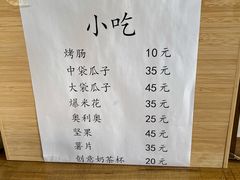 小吃
烤肠 10元
中袋瓜子 35元
大袋瓜子 45元
爆米花 35元
奥利奥 25元
坚果 45元
薯片 35元
创意奶茶杯 20元